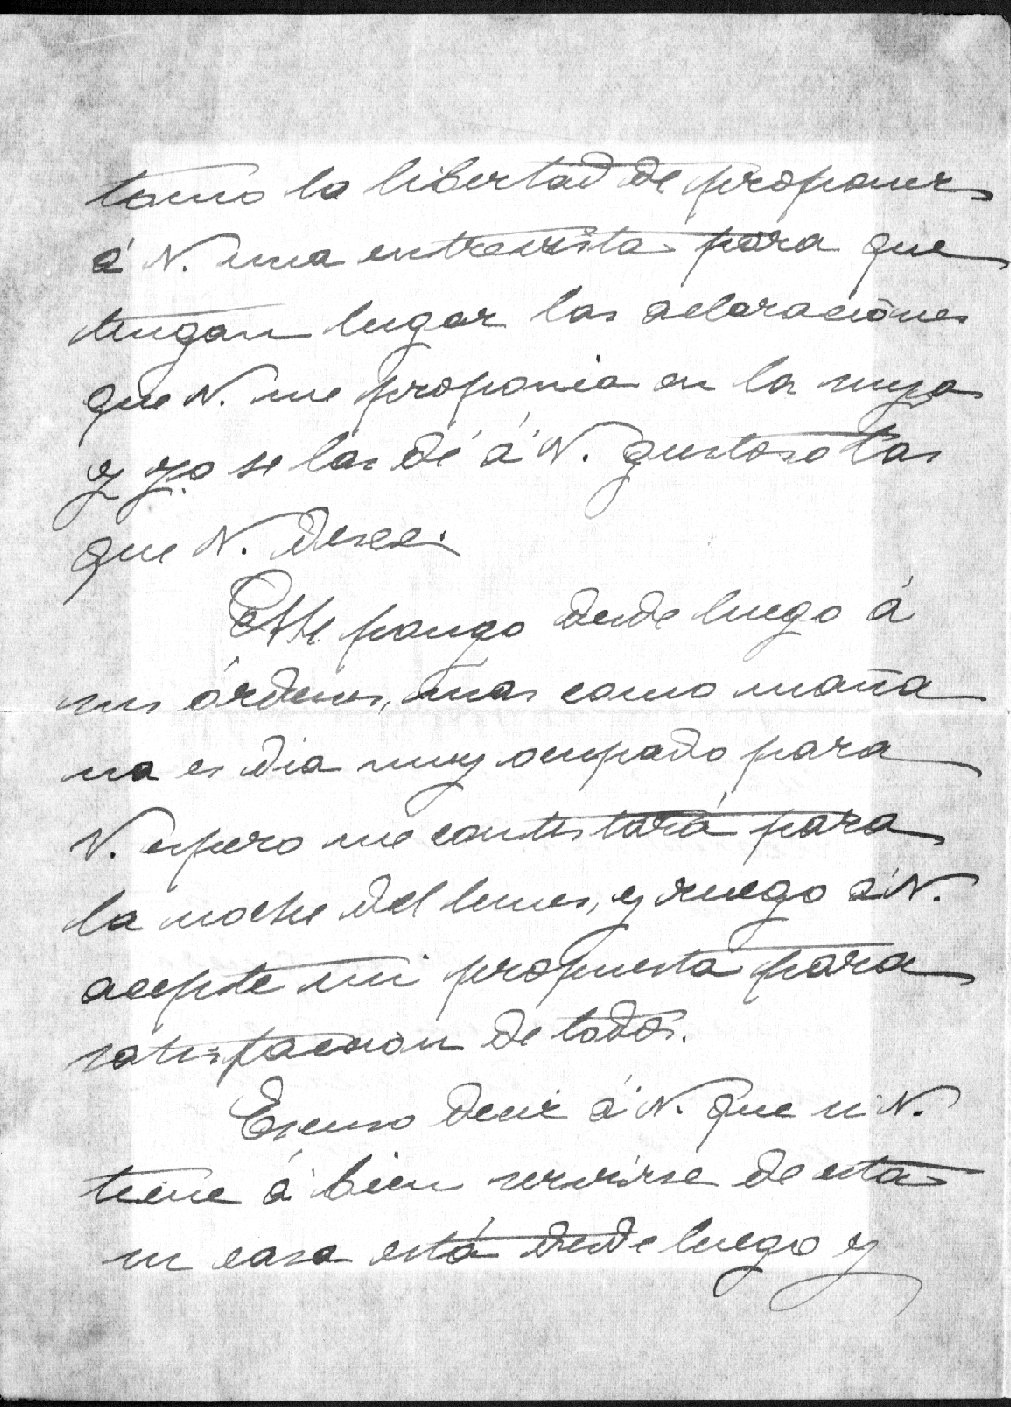 tomo la libertad de proponer
á V. una entrevista para que
tengan lugar las aclaraciones
que V. me proponia en la suya
y yo se las dé á V. gustoso las
que V. desee.
Me pongo desde luego á
sus órdenes, mas como maña
na es dia muy ocupado para
V. espero me contestará para
la noche del lunes, y ruego á V.
acepte mi propuesta para
satisfaccion de todos.
Escuso decir á V. que si V.
tiene á bien servirse de esta
su casa está desde luego y